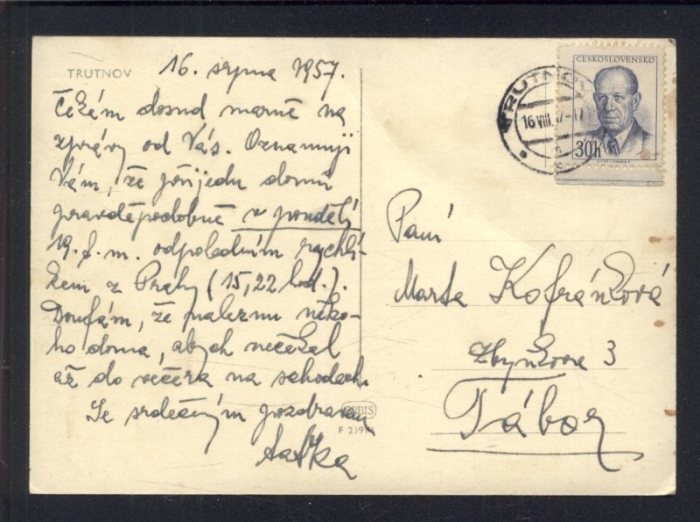 TRUTNOV
16. srpna 1957.
Čekám dosud marně na
zprávy od Vás. Oznamuji
Vám, že přijedu domů
pravděpodobně v pondělí
19. t. m. odpoledním rychlí-
kem z Prahy (15,22 hod.).
Doufám, že naleznu něko-
ho doma, abych nečekal
až do večera na schodech.
Se srdečným pozdravem
ORBIS
ČESKOSLOVENSKO
30h
TRUTNOV
16.VIII.57-17
Paní
Marta Kofránková
Zbyňkova 3
Tábor